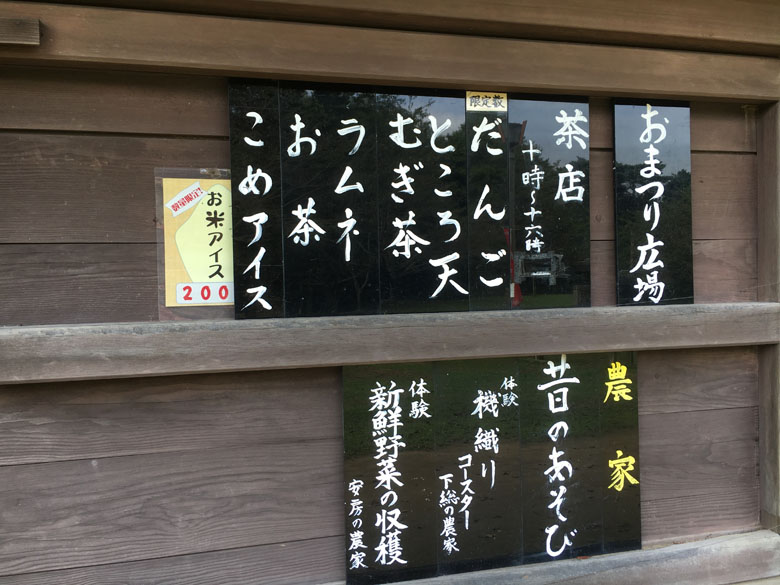 おまつり広場
茶店
十時～十六時
限定数
だんご
ところ天
むぎ茶
ラムネ
お茶
こめアイス
数量限定!
お米アイス
200
農家
昔のあそび
体験
機織り
コースター
下総の農家
体験
新鮮野菜の収穫
安房の農家